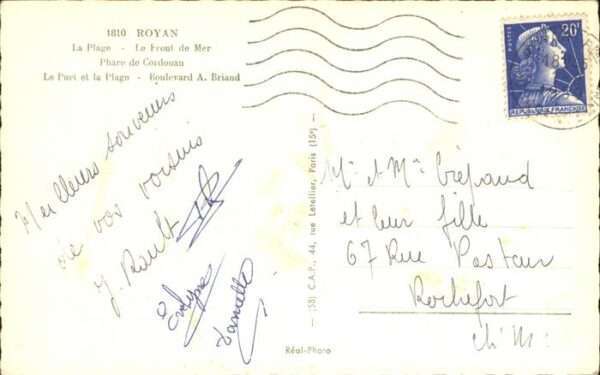 1810 ROYAN
La Plage - Le Front de Mer
Phare de Cordouan
Le Port et la Plage - Boulevard A. Briand
Meilleurs souvenirs
de vos voisins
J. Rault
Evelyne
Danielle
(58) C.A.P., 44, rue Letellier, Paris (15e)
Réal-Photo
POSTES
20F
REPUBLIQUE FRANÇAISE
Mr et Me Crépaud
et leur fille
67 Rue Pasteur
Rochefort
Ch. Me